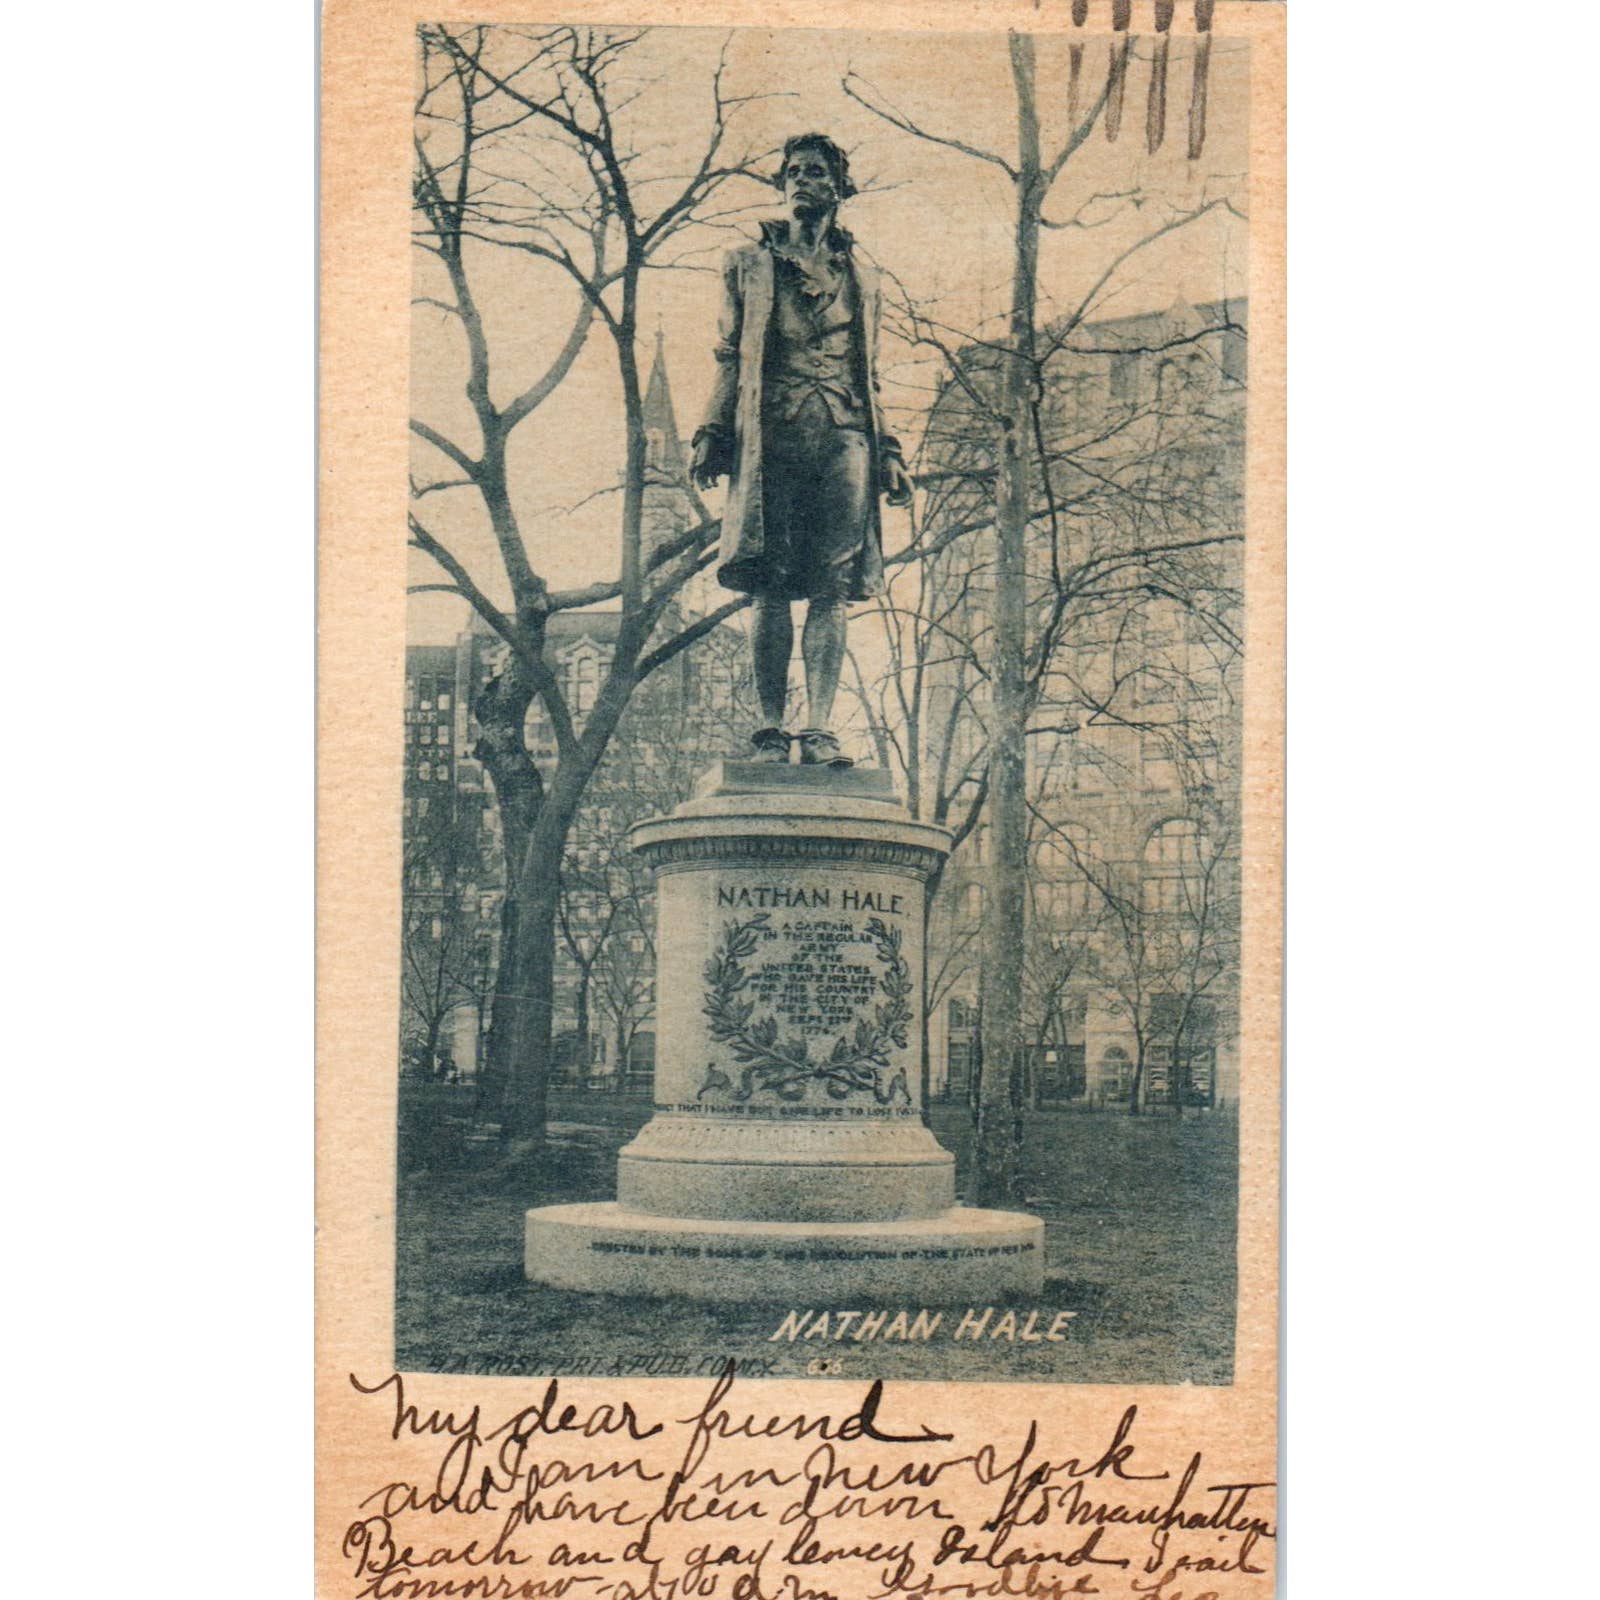 NATHAN HALE
A CAPTAIN
IN THE REGULAR
ARMY
OF THE
UNITED STATES
WHO GAVE HIS LIFE
FOR HIS COUNTRY
IN THE CITY OF
NEW YORK
SEPT 22ND
1776.
THAT I HAVE BUT ONE LIFE TO LOSE
ERECTED BY THE SONS OF THE REVOLUTION OF THE STATE OF NEW
NATHAN HALE
H.A. ROST. PRT. & PUB. CO. N.Y. 656
My dear friend
I am in New York
and have been down to Manhatten
Beach and gay Coney Island. I sail
tomorrow at 10 a m Goodbye